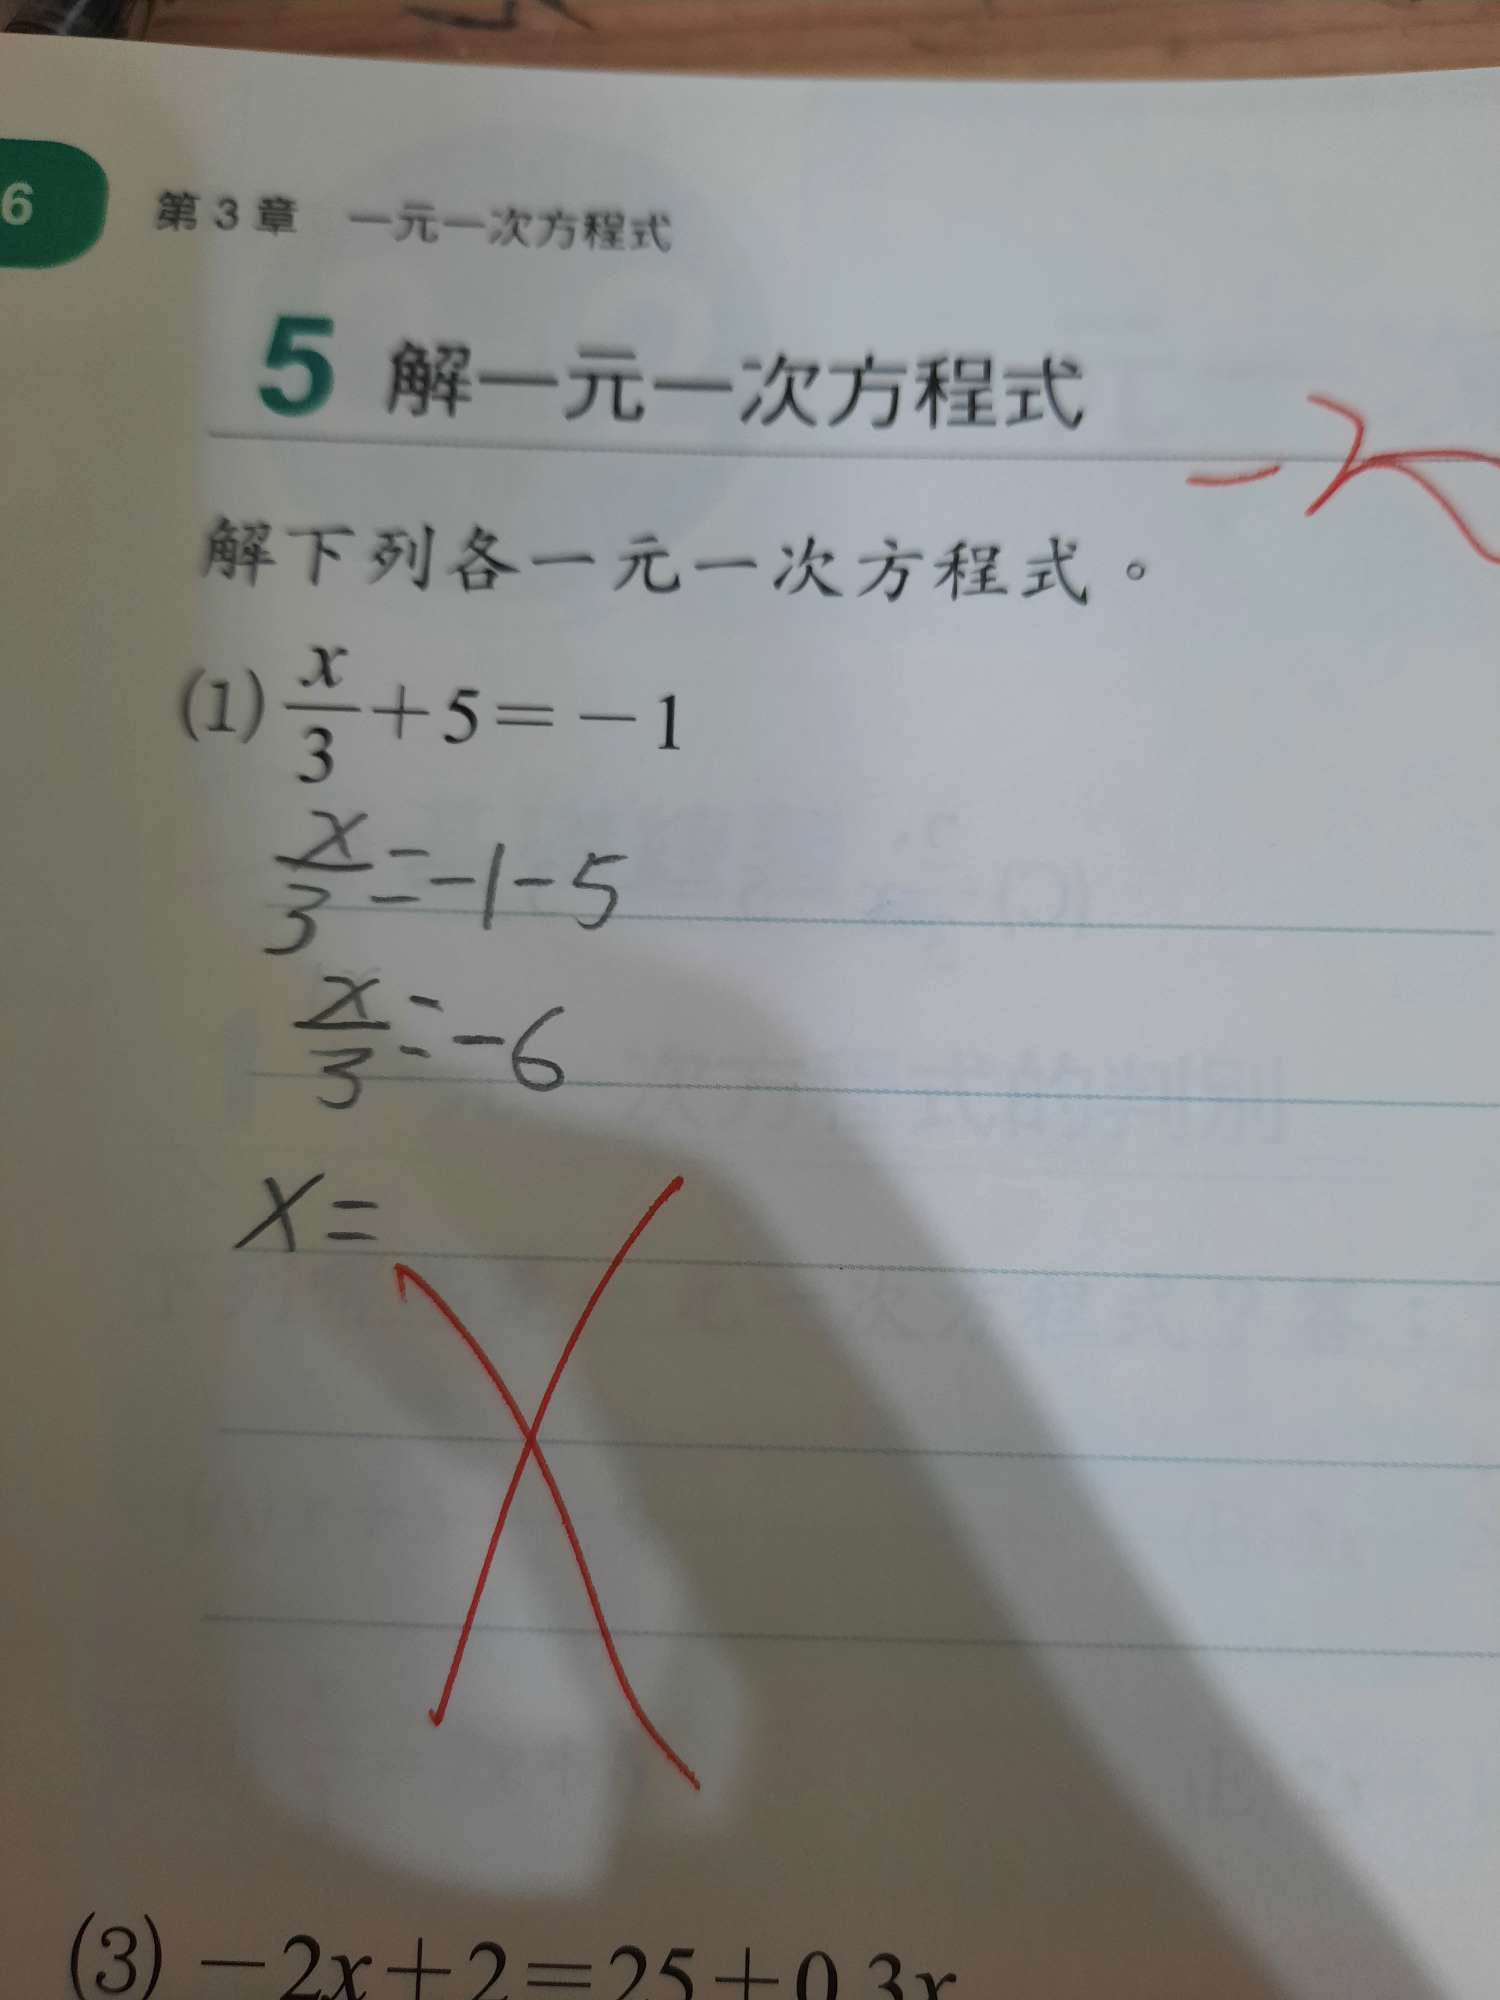 6
第3章 一元一次方程式
5 解一元一次方程式
解下列各一元一次方程式。
(1) x/3 + 5 = −1
x/3 = -1-5
x/3 = -6
x =
(3) −2x+2=25+0.3x